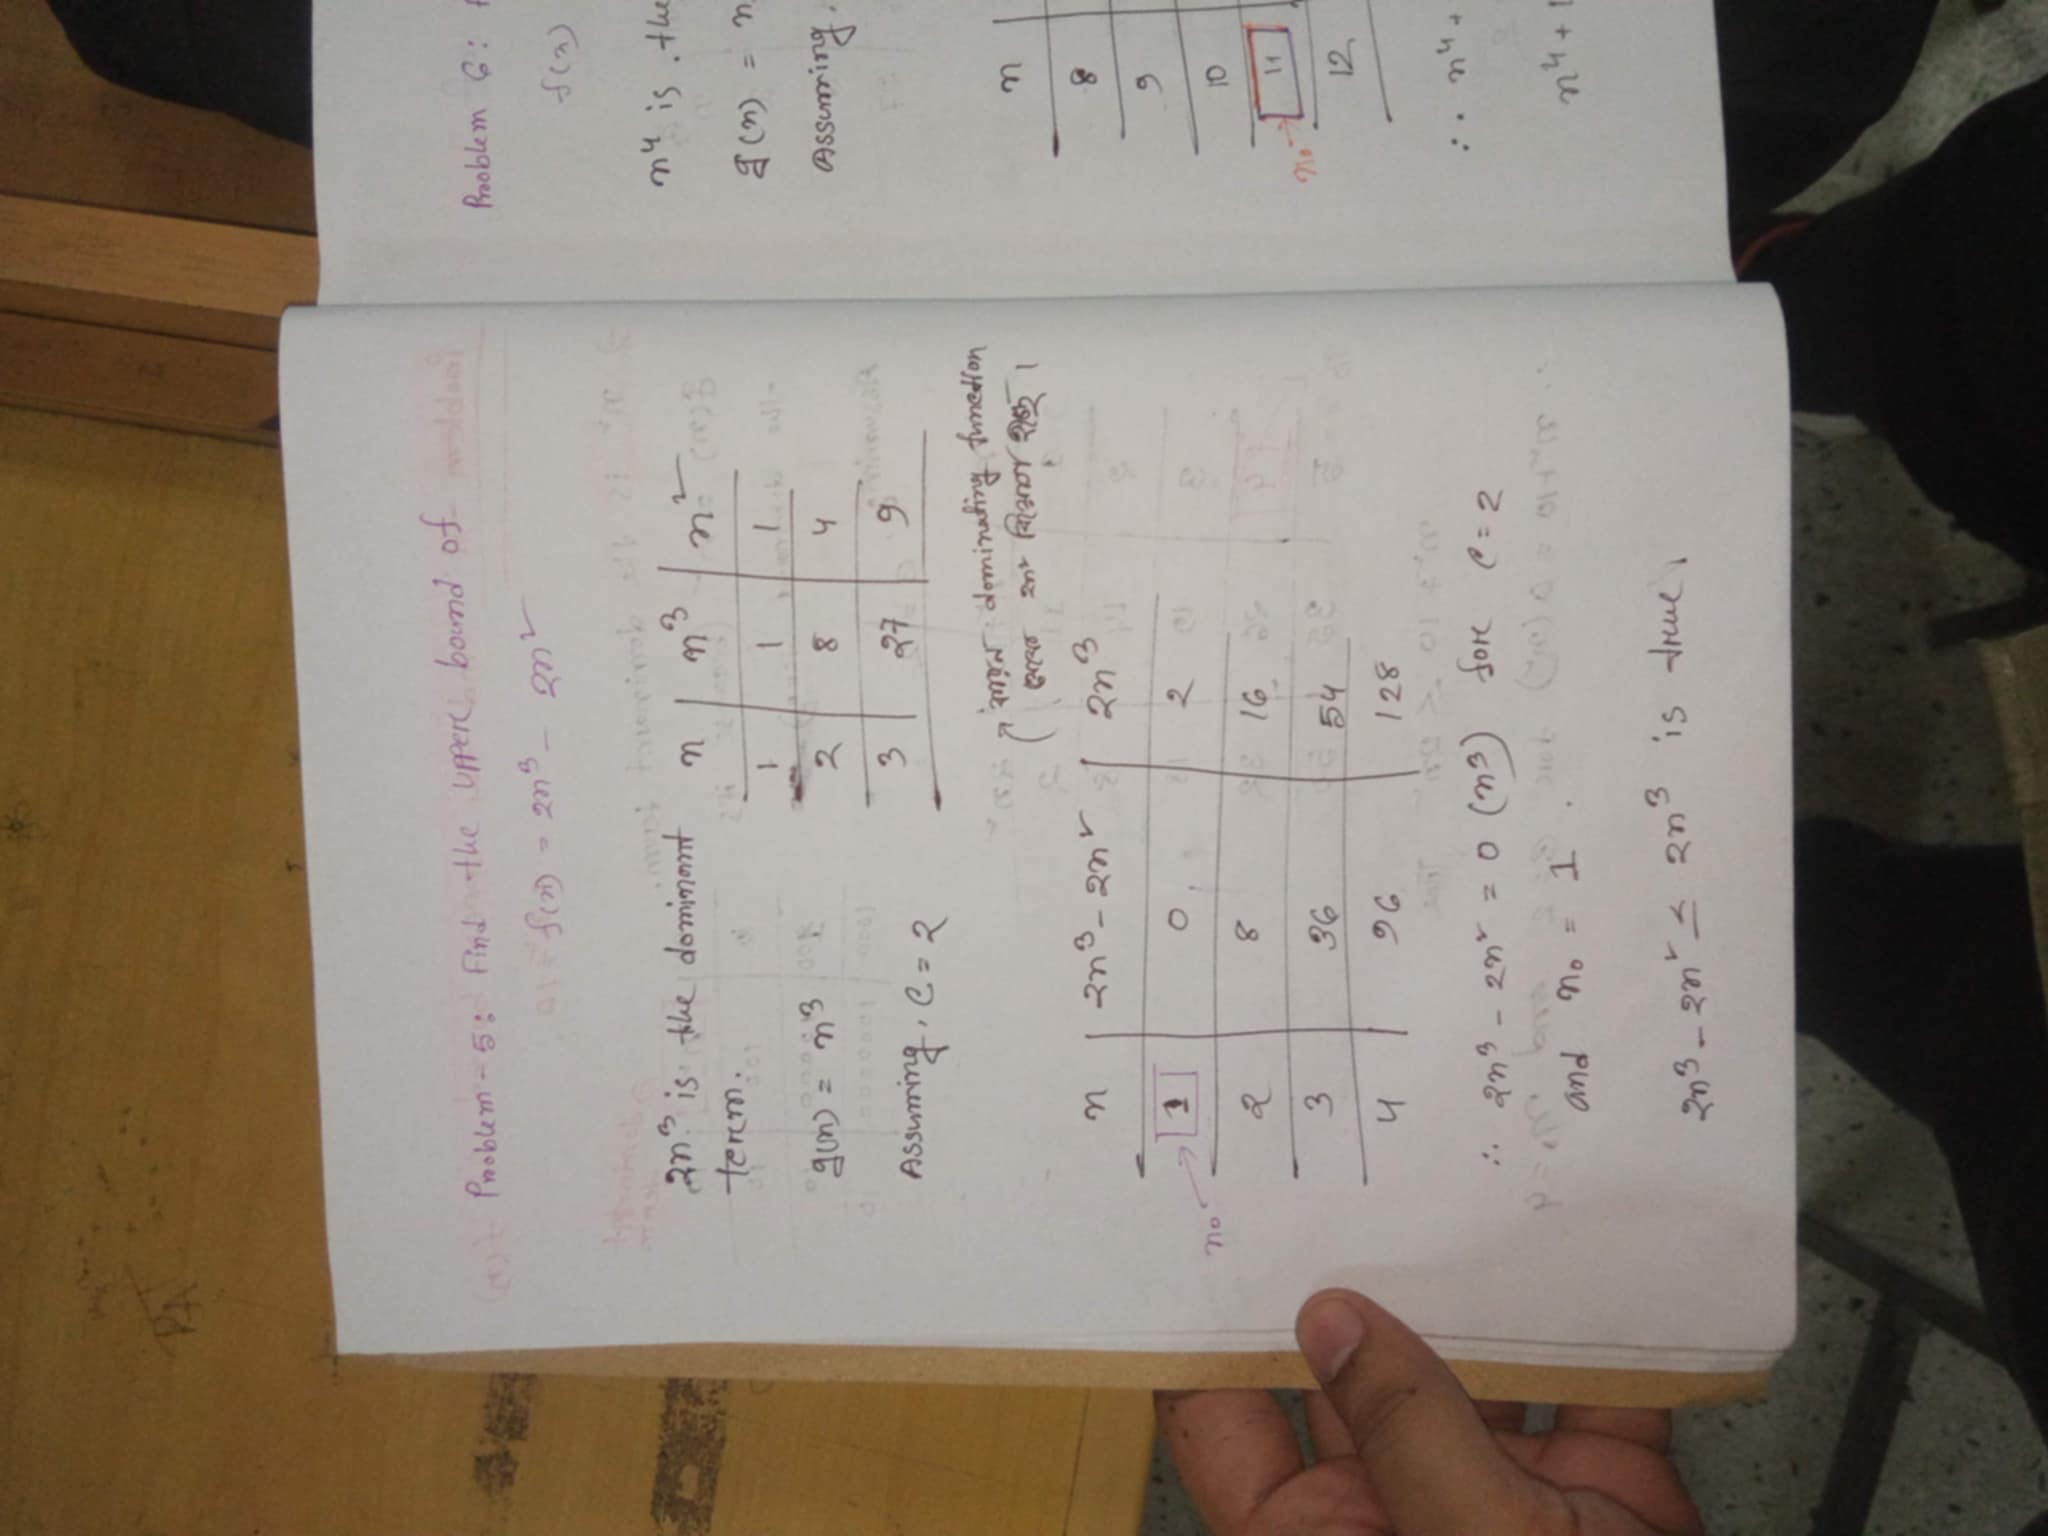 PA
Problem - 5: Find the upper bound of
f(n) = 2n³ - 2n²
2n³ is the dominant
term.
g(n) = n³
Assuming, c = 2
n n³ n²
1 1 1
2 8 4
3 27 9
কারন dominating function
থেকে 2n² বিয়োগ হচ্ছে।
n 2n³ - 2n² 2n³
n₀ 1 0 2
2 8 16
3 36 54
4 96 128
∴ 2n³ - 2n² = O (n³) for c = 2
and n₀ = 1 .
2n³ - 2n² ≤ 2n³ is true.
Problem 6:
f(n)
n⁴ is the
g(n) = n
Assuming,
n
8
9
10
n₀ 11
12
∴ n⁴ +
n⁴ + 1